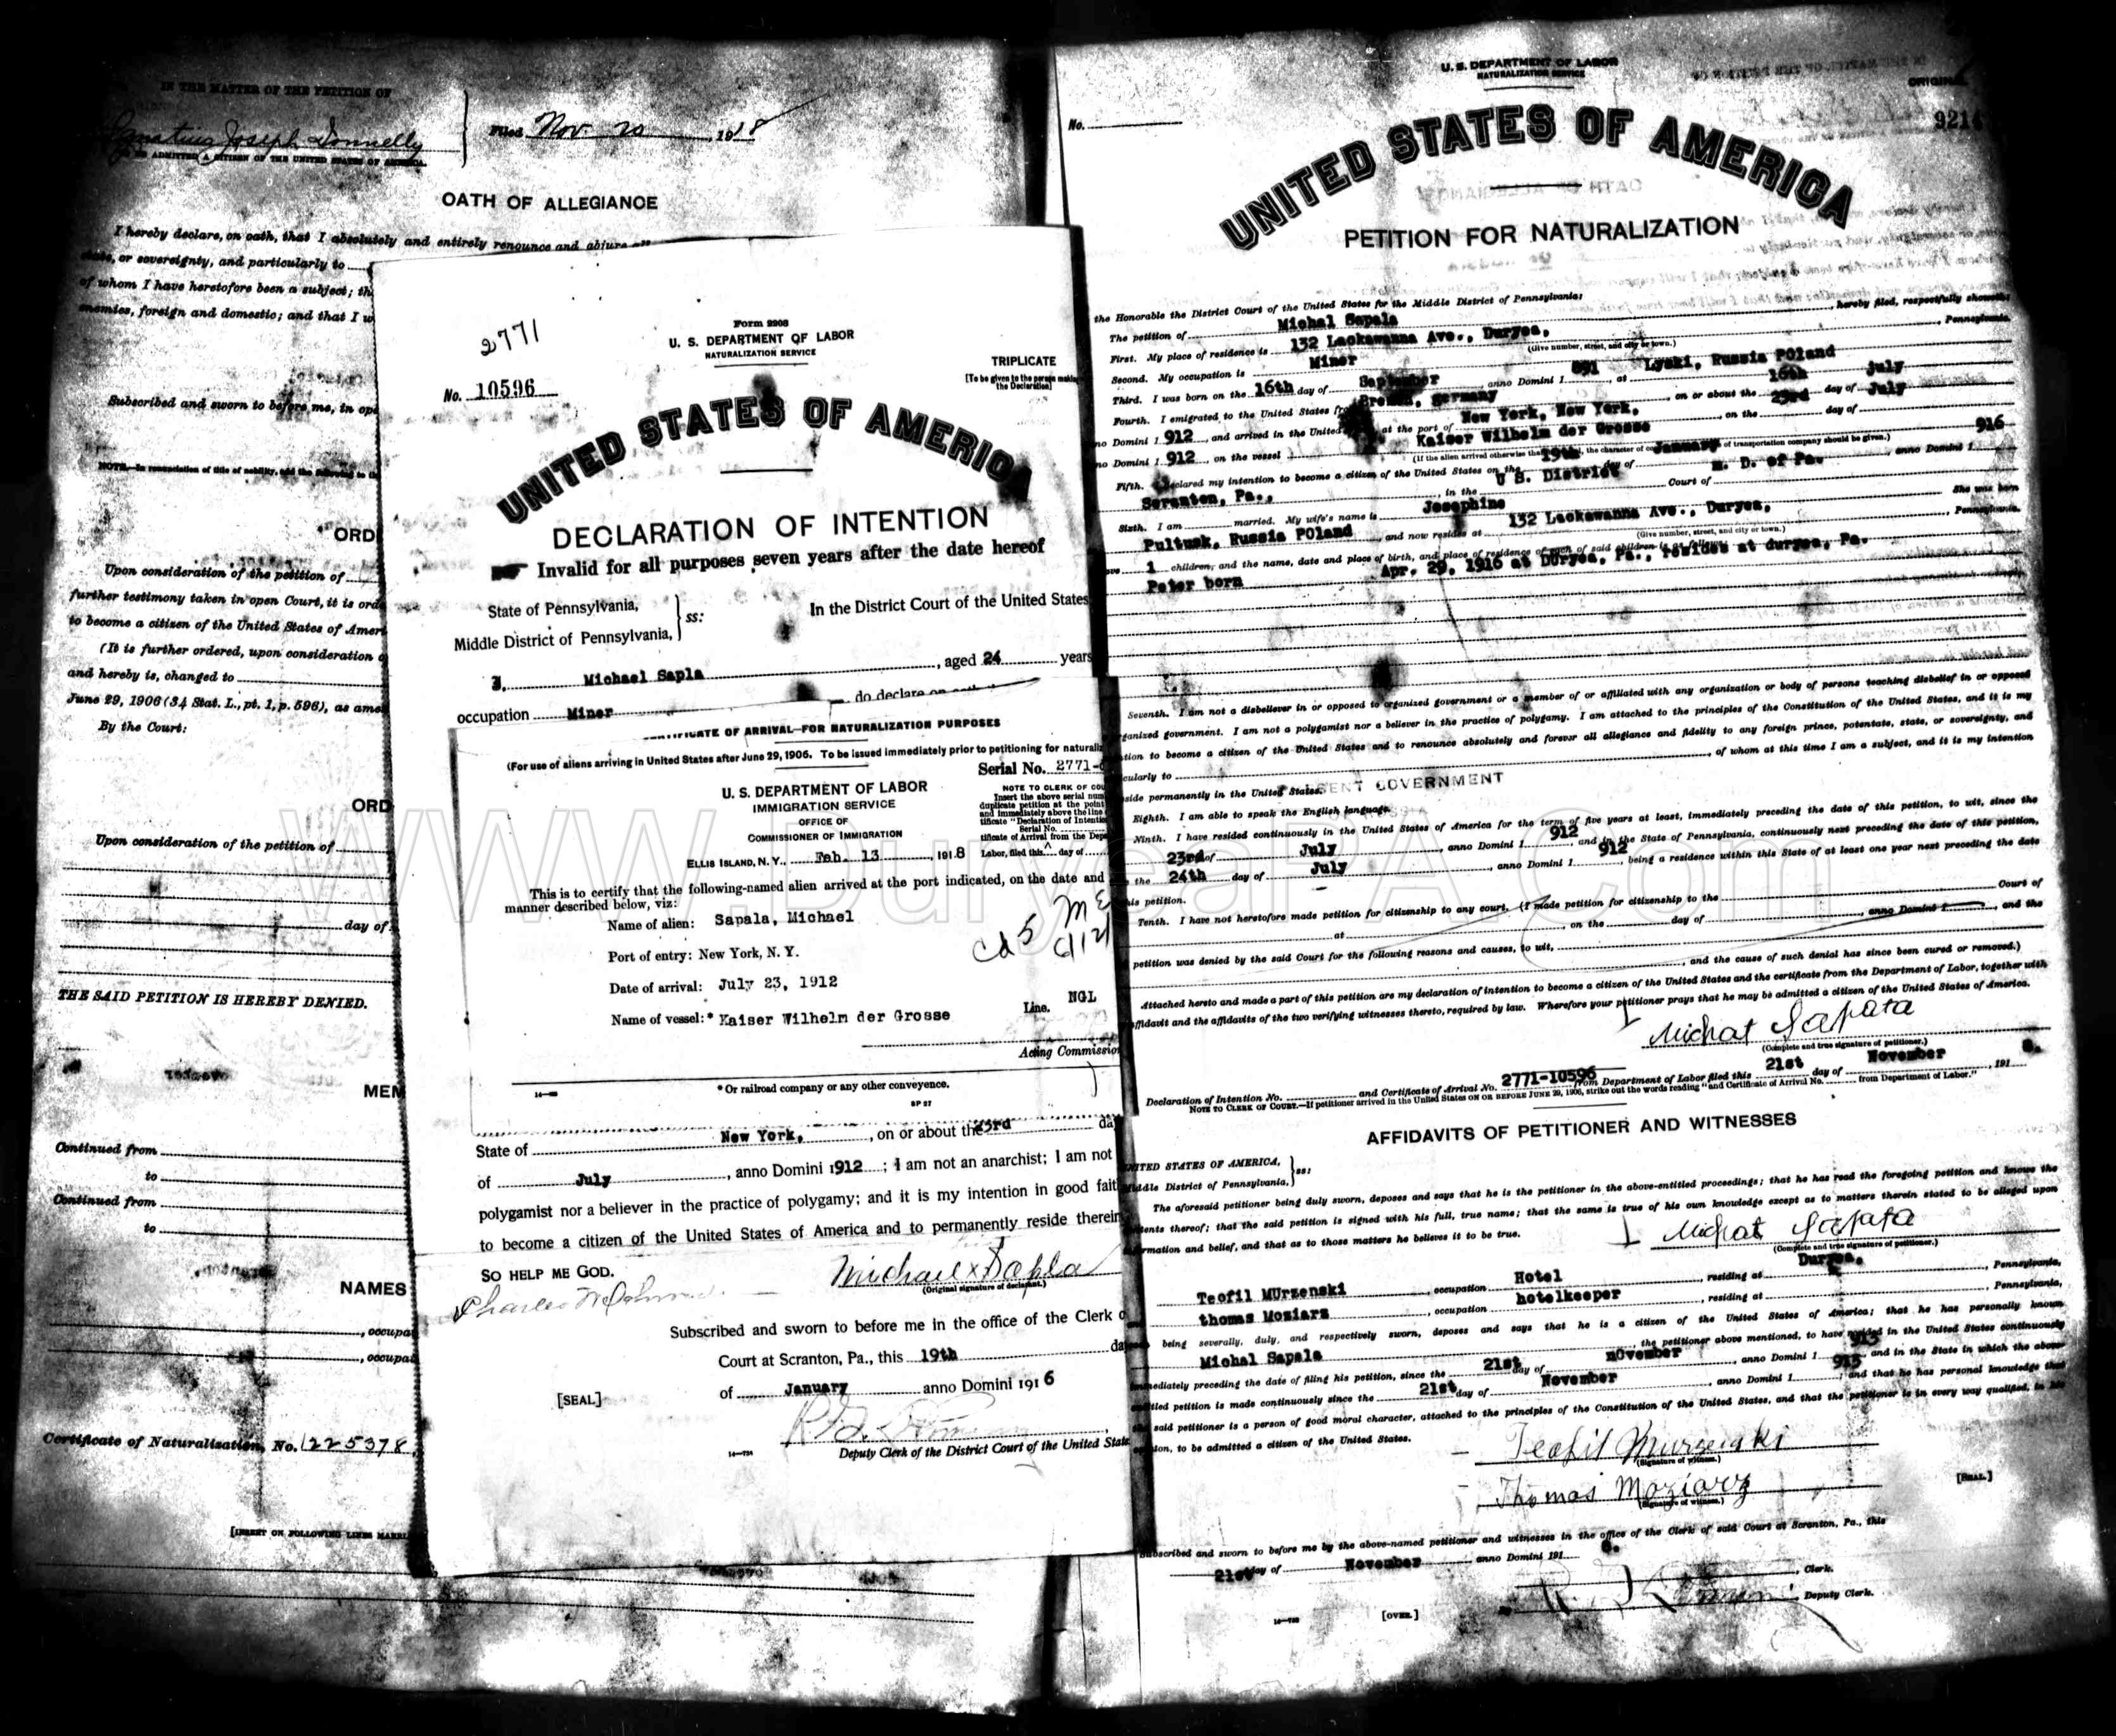 IN THE MATTER OF THE PETITION OF
Ignatius Joseph Donnelly
TO BE ADMITTED A CITIZEN OF THE UNITED STATES OF AMERICA.
Filed Nov. 20, 1918
OATH OF ALLEGIANCE
I hereby declare, on oath, that I absolutely and entirely renounce and abjure all
state, or sovereignty, and particularly to
of whom I have heretofore been a subject; th
enemies, foreign and domestic; and that I w
Subscribed and sworn to before me, in op
NOTE.—In renunciation of title of nobility, add the following to th
ORD
Upon consideration of the petition of
further testimony taken in open Court, it is orde
to become a citizen of the United States of Amer
(It is further ordered, upon consideration o
and hereby is, changed to
June 29, 1906 (34 Stat. L., pt. 1, p. 596), as ame
By the Court:
ORD
Upon consideration of the petition of
day of
THE SAID PETITION IS HEREBY DENIED.
MEM
Continued from
to
Continued from
to
NAMES
, occupa
, occupa
Certificate of Naturalization, No. 1225378
2771
Form 2203
U. S. DEPARTMENT OF LABOR
NATURALIZATION SERVICE
TRIPLICATE
[To be given to the person making the Declaration]
No. 10596
UNITED STATES OF AMERICA
DECLARATION OF INTENTION
Invalid for all purposes seven years after the date hereof
State of Pennsylvania,
Middle District of Pennsylvania,
ss:
In the District Court of the United States
I, Michael Sapla, aged 24 years
occupation Miner do declare on oath
CERTIFICATE OF ARRIVAL—FOR NATURALIZATION PURPOSES
(For use of aliens arriving in United States after June 29, 1906. To be issued immediately prior to petitioning for naturaliz
Serial No. 2771-
U. S. DEPARTMENT OF LABOR
IMMIGRATION SERVICE
OFFICE OF
COMMISSIONER OF IMMIGRATION
NOTE TO CLERK OF COU
Insert the above serial num
duplicate petition at the point
and immediately above the line
tificate "Declaration of Intentio
Serial No.
tificate of Arrival from the Depa
Labor, filed this day of
ELLIS ISLAND, N. Y., Feb. 13, 1918
This is to certify that the following-named alien arrived at the port indicated, on the date and
manner described below, viz:
Name of alien: Sapala, Michael
Port of entry: New York, N. Y.
Date of arrival: July 23, 1912
Name of vessel:* Kaiser Wilhelm der Grosse Line. NGL
Acting Commission
* Or railroad company or any other conveyance.
State of New York, on or about the 23rd da
of July, anno Domini 1912; I am not an anarchist; I am not
polygamist nor a believer in the practice of polygamy; and it is my intention in good fait
to become a citizen of the United States of America and to permanently reside therein
SO HELP ME GOD.
Michael x Sapla
(Original signature of declarant.)
Subscribed and sworn to before me in the office of the Clerk o
Court at Scranton, Pa., this 19th da
[SEAL]
of January anno Domini 1916
Deputy Clerk of the District Court of the United State
U. S. DEPARTMENT OF LABOR
NATURALIZATION SERVICE
ORIGINAL
No.
9214
UNITED STATES OF AMERICA
PETITION FOR NATURALIZATION
the Honorable the District Court of the United States for the Middle District of Pennsylvania:
The petition of Michal Sapala, hereby filed, respectfully showeth:
First. My place of residence is 132 Lackawanna Ave., Duryea, Pennsylvania.
(Give number, street, and city or town.)
Second. My occupation is Miner
Third. I was born on the 16th day of September anno Domini 1891, at Lyski, Russia POland
Fourth. I emigrated to the United States from Bremen, Germany, on or about the 16th day of July
no Domini 1912, and arrived in the United at the port of New York, New York, on the 23rd day of July
no Domini 1912, on the vessel Kaiser Wilhelm der Grosse
Fifth. I declared my intention to become a citizen of the United States on the 19th day of January anno Domini 1916
Scranton, Pa., in the U S. District Court of M. D. of Pa.
Sixth. I am married. My wife's name is Josephine She was born
Pultusk, Russia POland, and now resides at 132 Lackawanna Ave., Duryea, Pennsylvania.
(Give number, street, and city or town.)
ave 1 children, and the name, date and place of birth, and place of residence of each of said children is as follows:
Peter born Apr. 29, 1916 at Duryea, Pa., resides at duryea, Pa.
Seventh. I am not a disbeliever in or opposed to organized government or a member of or affiliated with any organization or body of persons teaching disbelief in or opposed
ganized government. I am not a polygamist nor a believer in the practice of polygamy. I am attached to the principles of the Constitution of the United States, and it is my
ntion to become a citizen of the United States and to renounce absolutely and forever all allegiance and fidelity to any foreign prince, potentate, state, or sovereignty, and
cularly to, of whom at this time I am a subject, and it is my intention
side permanently in the United States.
Eighth. I am able to speak the English language.
Ninth. I have resided continuously in the United States of America for the term of five years at least, immediately preceding the date of this petition, to wit, since the
23rd of July, anno Domini 1912, and in the State of Pennsylvania, continuously next preceding the date of this petition,
the 24th day of July, anno Domini 1912, being a residence within this State of at least one year next preceding the date
his petition.
Tenth. I have not heretofore made petition for citizenship to any court. (I made petition for citizenship to the Court of
at, on the day of, anno Domini 1, and the
petition was denied by the said Court for the following reasons and causes, to wit,
, and the cause of such denial has since been cured or removed.)
Attached hereto and made a part of this petition are my declaration of intention to become a citizen of the United States and the certificate from the Department of Labor, together with
affidavit and the affidavits of the two verifying witnesses thereto, required by law. Wherefore your petitioner prays that he may be admitted a citizen of the United States of America.
Michat Sapata
(Complete and true signature of petitioner.)
Declaration of Intention No. and Certificate of Arrival No. 2771-10596 from Department of Labor filed this 21st day of November, 1918.
NOTE TO CLERK OF COURT.—If petitioner arrived in the United States ON OR BEFORE JUNE 29, 1906, strike out the words reading "and Certificate of Arrival No. from Department of Labor."
AFFIDAVITS OF PETITIONER AND WITNESSES
UNITED STATES OF AMERICA,
Middle District of Pennsylvania,
ss:
The aforesaid petitioner being duly sworn, deposes and says that he is the petitioner in the above-entitled proceedings; that he has read the foregoing petition and knows the
tents thereof; that the said petition is signed with his full, true name; that the same is true of his own knowledge except as to matters therein stated to be alleged upon
rmation and belief, and that as to those matters he believes it to be true.
Michat Sapata
(Complete and true signature of petitioner.)
Teofil MUrzenski, occupation Hotel, residing at Duryea, Pennsylvania,
thomas Moziarz, occupation hotelkeeper, residing at, Pennsylvania,
being severally, duly, and respectively sworn, deposes and says that he is a citizen of the United States of America; that he has personally known
Michal Sapala, the petitioner above mentioned, to have resided in the United States continuously
mediately preceding the date of filing his petition, since the 21st day of nOvember, anno Domini 1913, and in the State in which the above-
titled petition is made continuously since the 21st day of November, anno Domini 1913, and that he has personal knowledge that
said petitioner is a person of good moral character, attached to the principles of the Constitution of the United States, and that the petitioner is in every way qualified, in his
nion, to be admitted a citizen of the United States.
Teofil Murzenski
(Signature of witness.)
Thomas Moziarz
(Signature of witness.)
[SEAL]
Subscribed and sworn to before me by the above-named petitioner and witnesses in the office of the Clerk of said Court at Scranton, Pa., this
21st day of November, anno Domini 1918.
, Clerk.
Deputy Clerk.
[OVER.]
www.DuryeaPA.com